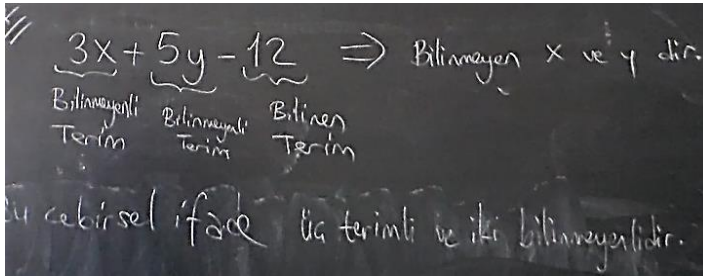 3x + 5y - 12 ⇒ Bilinmeyen x ve y dir.
Bilinmeyenli Bilinmeyenli Bilinen
Terim Terim Terim
Bu cebirsel ifade üç terimli ve iki bilinmeyenlidir.